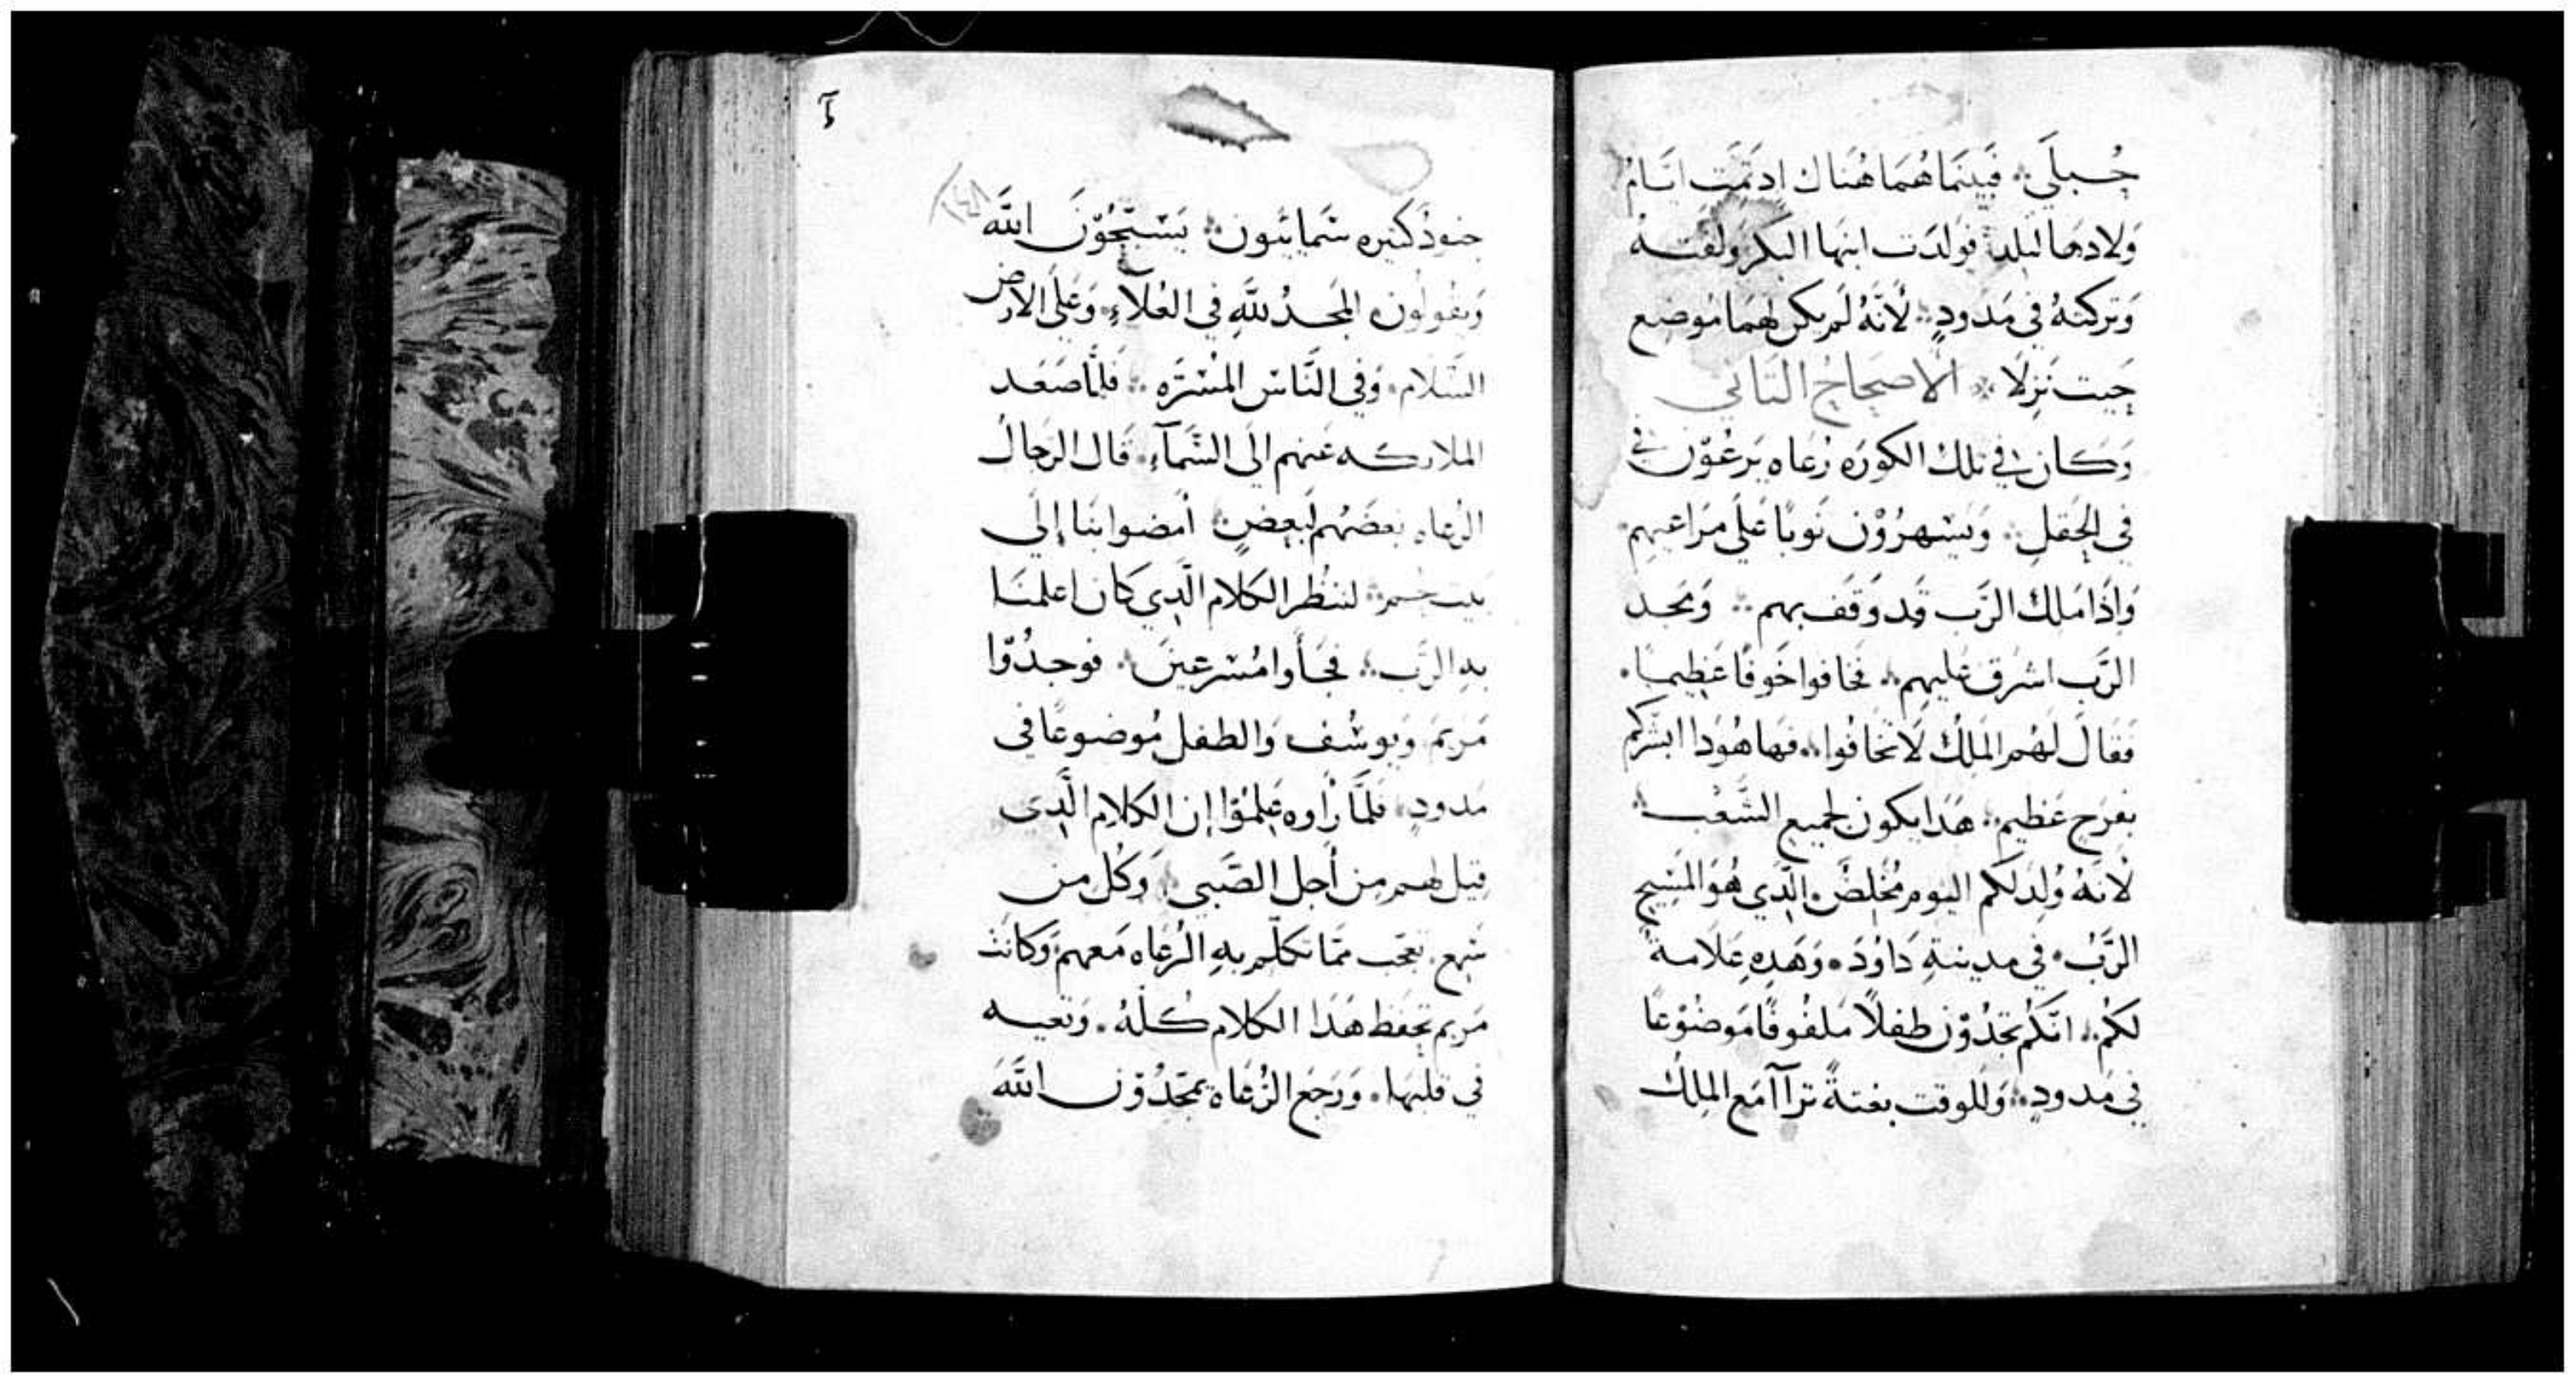 حُبلَى فَبينَمَا هُمَا هُنَاك اِد تَمَّتِ ايَّامُ
وَلادهَا لتلد فَولدَت ابنهَا البكر وَلفتهُ
وَتركتهُ في مَدودٍ لأنّهُ لَم يكن لهمَا مُوضِع
حَيت نَزلَا الاصحَاحُ التَاني
وَكَان في تلك الكورَه رُعَاه يَرعُوْن في
في الحَقلِ وَيَسْهرُوْن نَوبًا عَلى مَرَاعيهِم
وَإذَا مَلاك الرَّب قَد وَقَف بهم وَمجد
الرَّب اشرق عَليهِم فخافوا خَوفًا عَظيمًا
فقال لَهُم المَلاكُ لَا تخَافُوا فهَا هُوَدا ابشركم
بفرَحٍ عَظيم هَدَا يكون لجميع الشَّعْب
لأنهُ وُلِدَ لكم اليوم مُخَلِصٌ الَّدِي هُوَ المَسِيح
الرَّبُ في مدينةِ دَاوُدَ وَهَدِهِ عَلَامةٌ
لَكُم انّكُم تَجدُوْن طفلًا مَلفُوفًا مَوضُوْعًا
في مَدودٍ وَللوقت بغتةً ترآآ مَع الملاك
٤
١٤٨
جنود كثيره سَمائيُون يَسَبّحُوْنَ اللّه
وَيقُولُون المَجدُ للَّهِ في العُلَاءِ وَعَلى الارض
السَّلام وَفي النَّاسْ المسَرَّه فلمَّا صَعَد
الملايكه عَنهم الى السَّمآءِ قَال الرجَالُ
الرُعَاه بَعضَهُم لبَعضٍ أمضوا بنَا إلَى
بيت لحم لننظر الكَلام الَّدِي كَان اعلمنَا
بهِ الرَّب فجَأوا مُسْرعينَ فوجدُوْا
مَريَم وَيوسُف وَالطفل مُوضوعًا في
مَدودٍ فلمَّا رَأوه عَلِمُوْا إن الكلام الَّدِى
قيل لهم من أجل الصَّبي وَكل من
سَمع تعَجب ممَّا تكلّم بهِ الرُعَاه مَعهم وَكانت
مَريم تحفظ هَدَا الكَلام كُلّهُ وَتعيه
في قلبهَا وَرَجَع الرُعَاة يمجّدُوْن اللّهَ